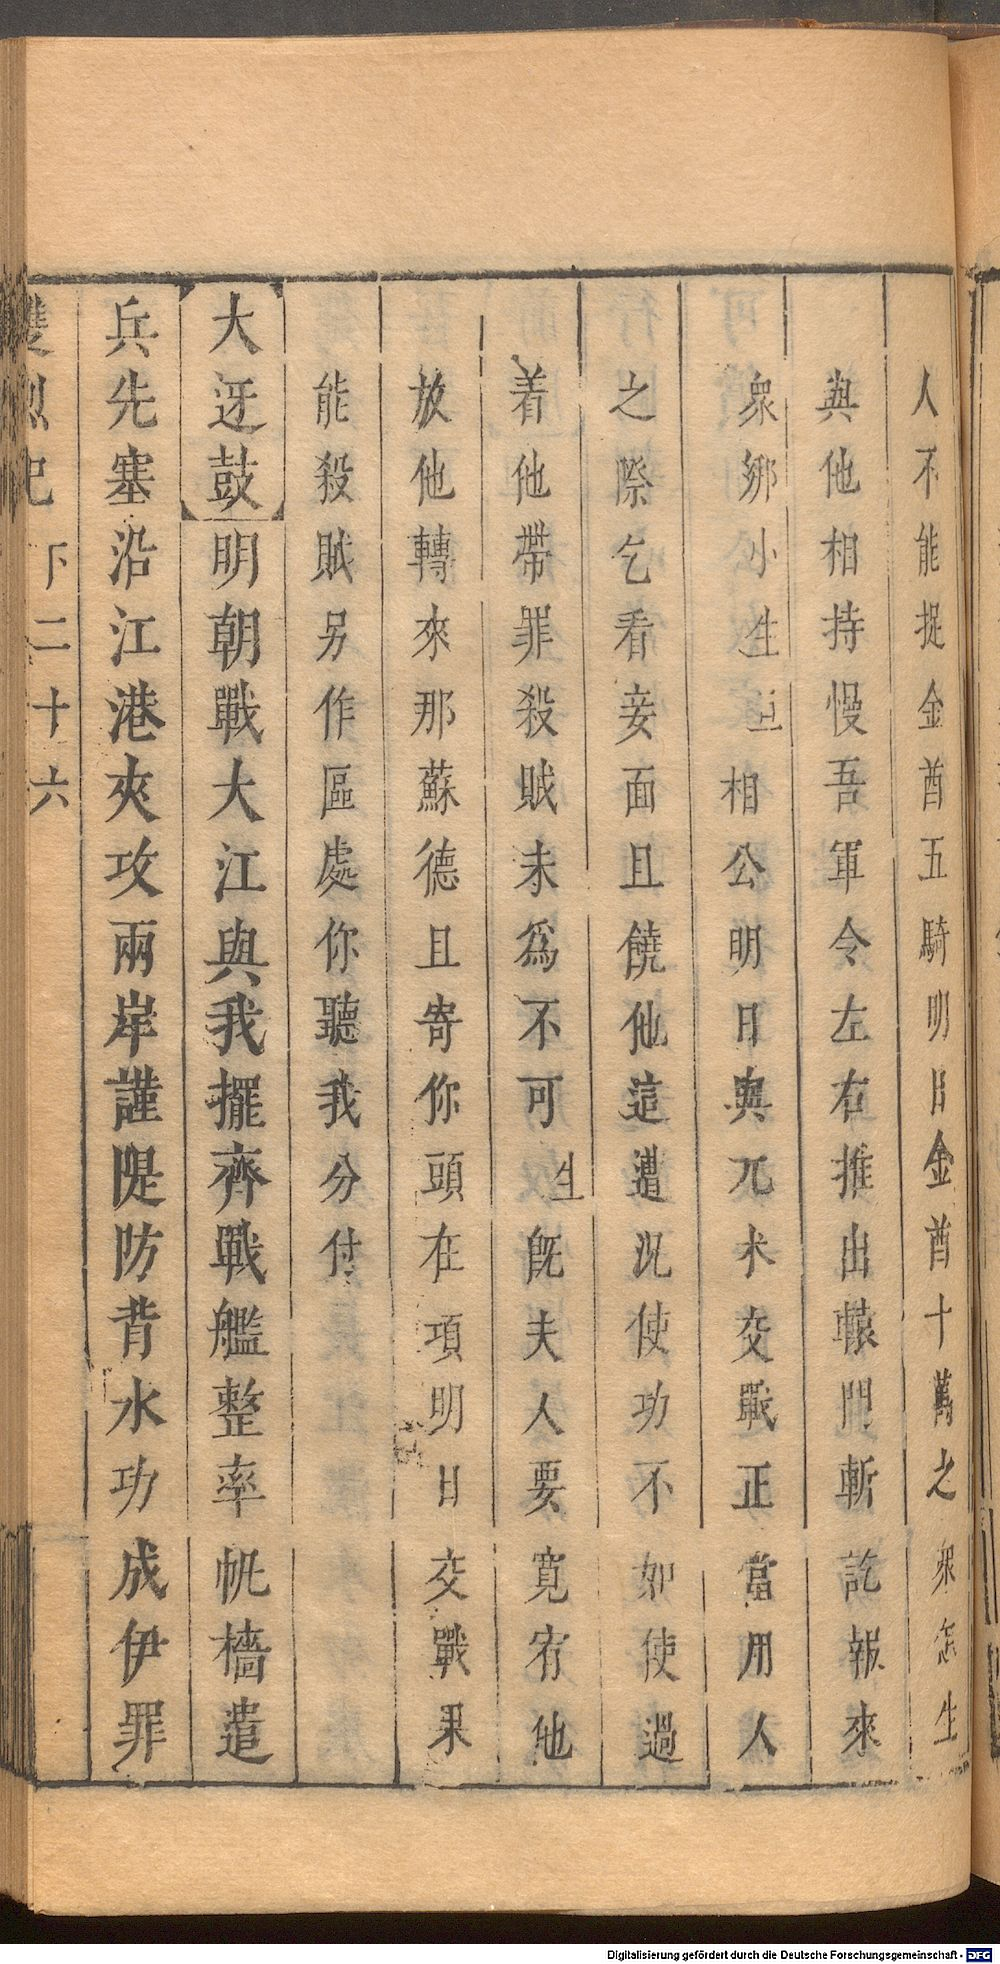 人不能捉金酋五騎明日金酋十萬之衆怎生
與他相持慢吾軍令左右推出轅門斬訖報來
衆綁小生
旦
相公明日與兀朮交戰正當用人
之際乞看妾面且饒他這遭況使功不如使過
着他帶罪殺賊未爲不可
生
旣夫人要寬宥他
放他轉來那蘇德且寄你頭在項明日交戰果
能殺賊另作區處你聽我分付
大迓鼓明朝戰大江與我擺齊戰艦整率帆檣遣
兵先塞沿江港夾攻兩岸謹隄防背水功成伊罪
雙烈記 下二十六
Digitalisierung gefördert durch die Deutsche Forschungsgemeinschaft - DFG